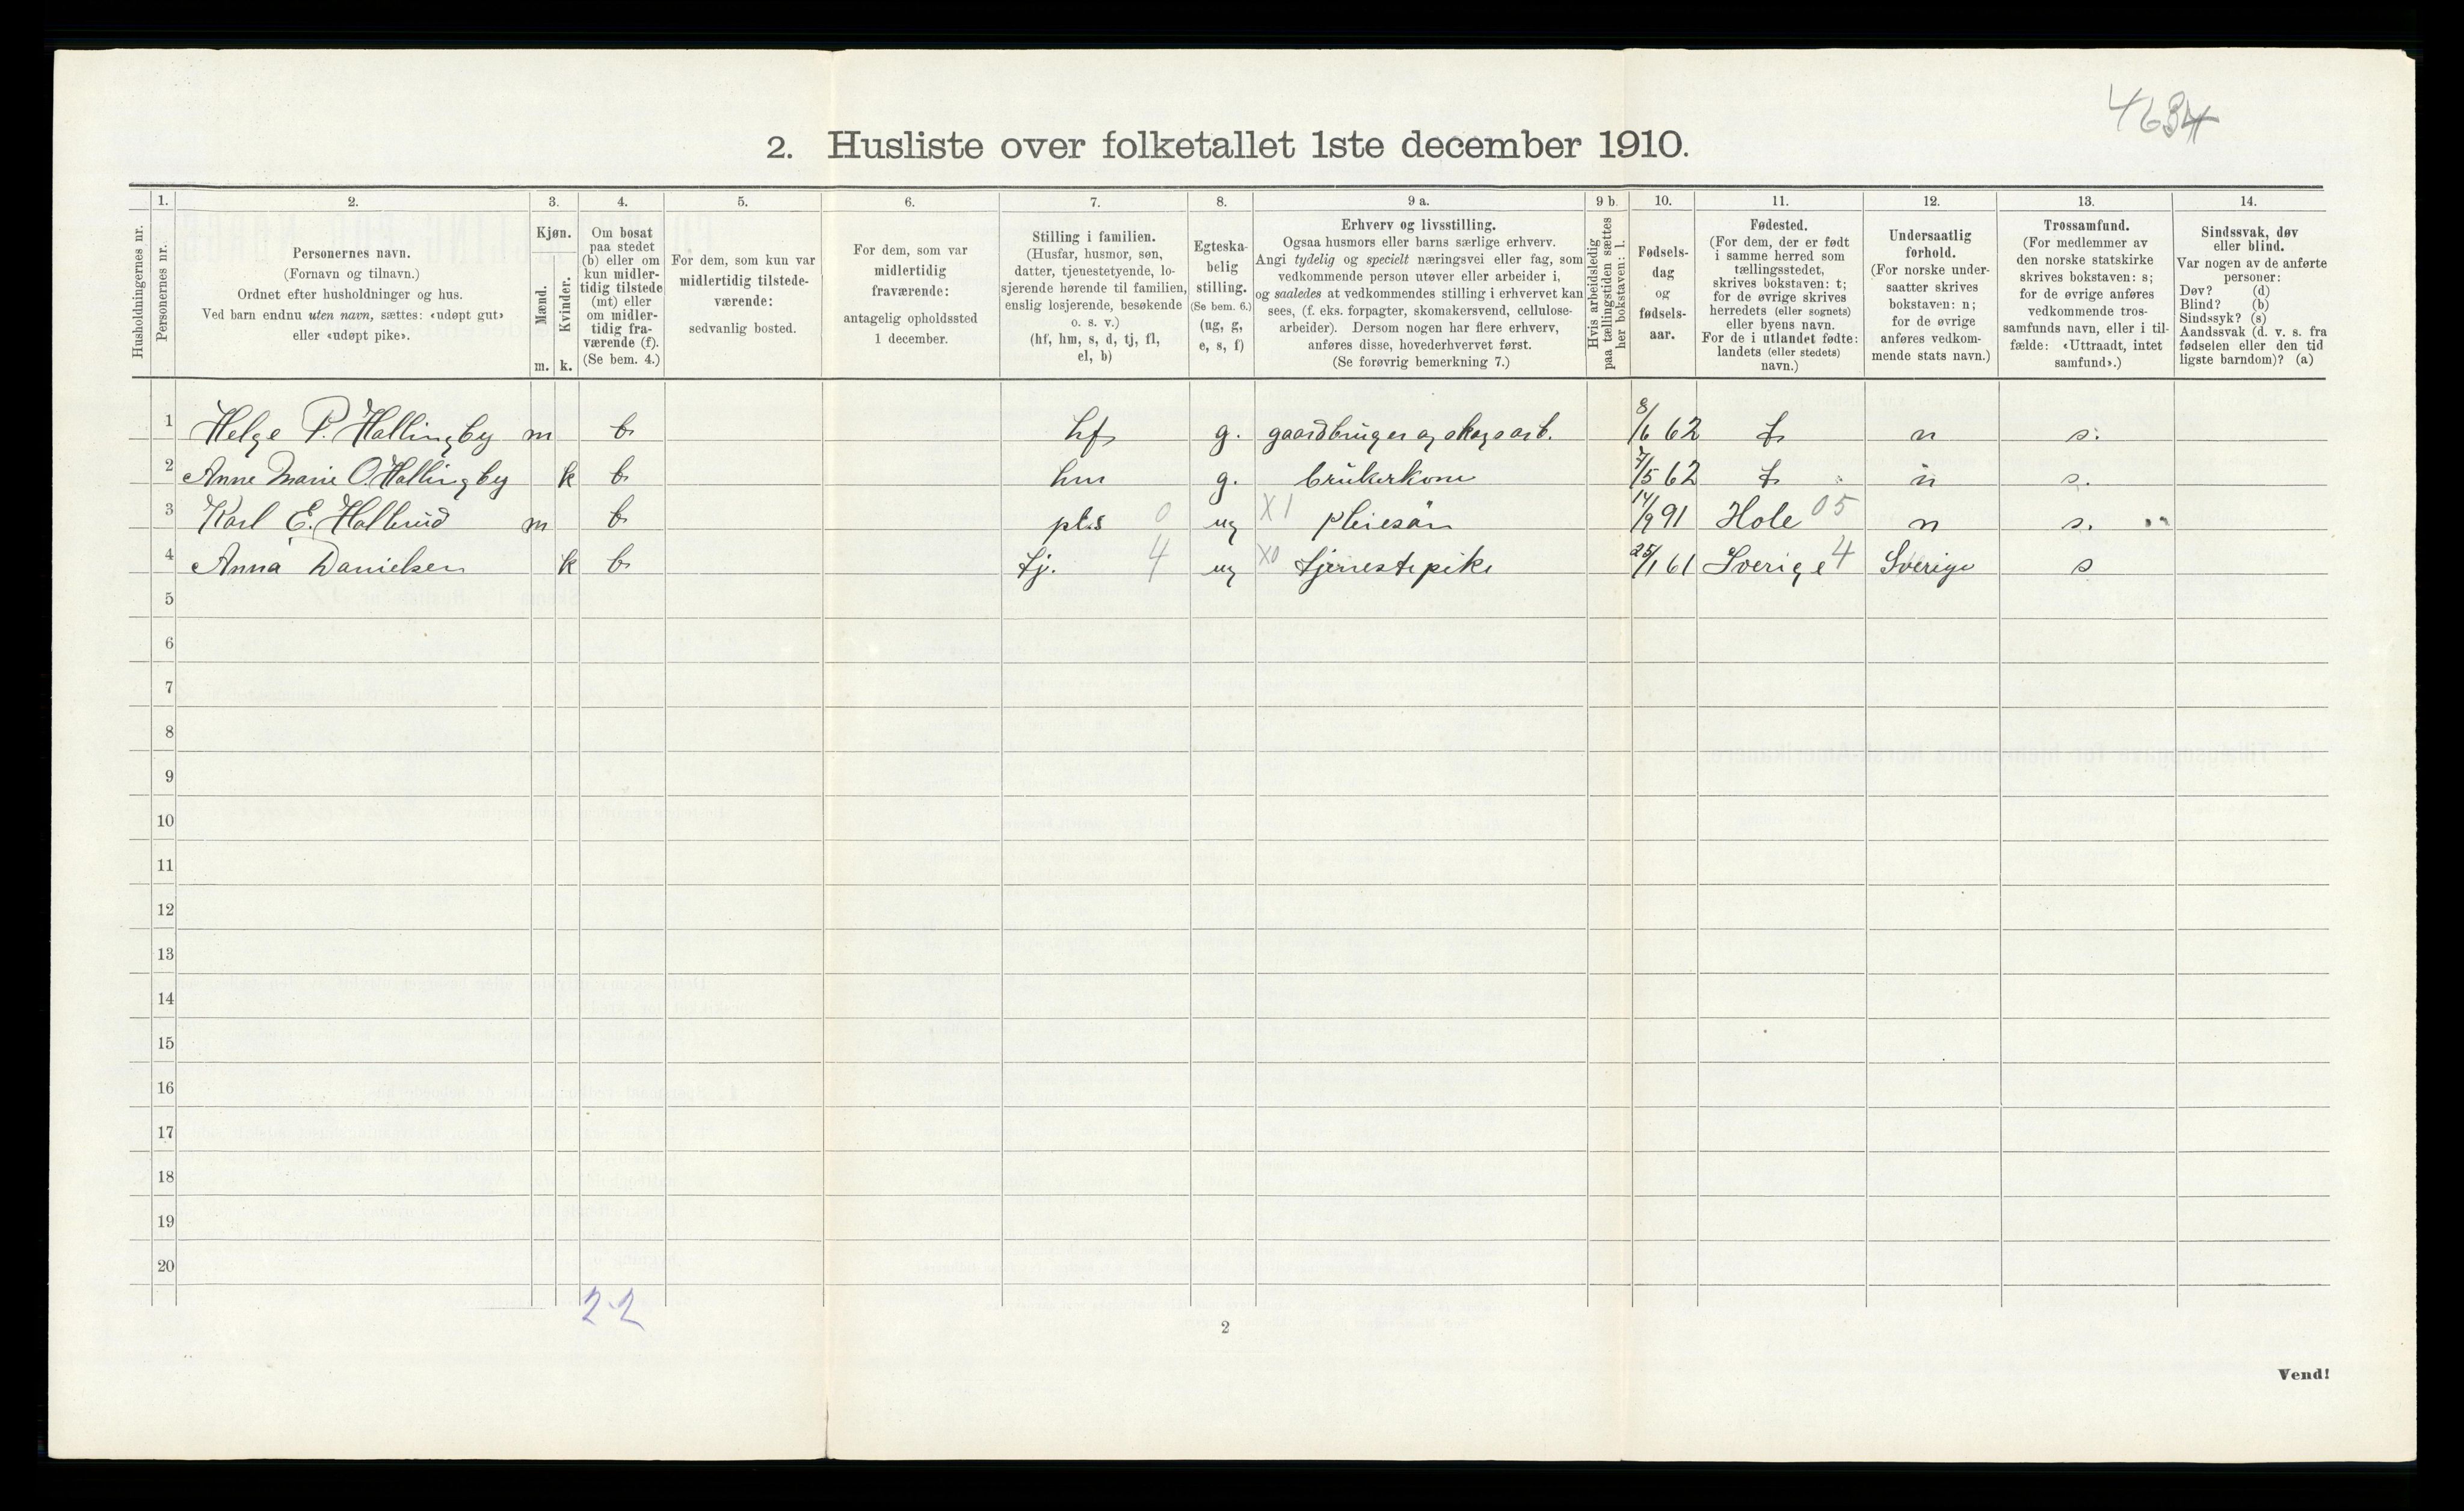 4634
2. Husliste over folketallet 1ste december 1910.
Husholdningernes nr.
1.
Personernes nr.
2.
Personernes navn.
(Fornavn og tilnavn.)
Ordnet efter husholdninger og hus.
Ved barn endnu uten navn, sættes: «udøpt gut»
eller «udøpt pike».
3.
Kjøn.
Mænd.
Kvinder.
m. k.
4.
Om bosat
paa stedet
(b) eller om
kun midler-
tidig tilstede
(mt) eller
om midler-
tidig fra-
værende (f).
(Se bem. 4.)
5.
For dem, som kun var
midlertidig tilstede-
værende:
sedvanlig bosted.
6.
For dem, som var
midlertidig
fraværende:
antagelig opholdssted
1 december.
7.
Stilling i familien.
(Husfar, husmor, søn,
datter, tjenestetyende, lo-
sjerende hørende til familien,
enslig losjerende, besøkende
o. s. v.)
(hf, hm, s, d, tj, fl,
el, b)
8.
Egteska-
belig
stilling.
(Se bem. 6.)
(ug, g,
e, s, f)
9 a.
Erhverv og livsstilling.
Ogsaa husmors eller barns særlige erhverv.
Angi tydelig og specielt næringsvei eller fag, som
vedkommende person utøver eller arbeider i,
og saaledes at vedkommendes stilling i erhvervet kan
sees, (f. eks. forpagter, skomakersvend, cellulose-
arbeider). Dersom nogen har flere erhverv,
anføres disse, hovederhvervet først.
(Se forøvrig bemerkning 7.)
9 b.
Hvis arbeidsledig
paa tællingstiden sættes
her bokstaven: l.
10.
Fødsels-
dag
og
fødsels-
aar.
11.
Fødested.
(For dem, der er født
i samme herred som
tællingsstedet,
skrives bokstaven: t;
for de øvrige skrives
herredets (eller sognets)
eller byens navn.
For de i utlandet fødte:
landets (eller stedets)
navn.)
12.
Undersaatlig
forhold.
(For norske under-
saatter skrives
bokstaven: n;
for de øvrige
anføres vedkom-
mende stats navn.)
13.
Trossamfund.
(For medlemmer av
den norske statskirke
skrives bokstaven: s;
for de øvrige anføres
vedkommende tros-
samfunds navn, eller i til-
fælde: «Uttraadt, intet
samfund».)
14.
Sindssvak, døv
eller blind.
Var nogen av de anførte
personer:
Døv? (d)
Blind? (b)
Sindssyk? (s)
Aandssvak (d. v. s. fra
fødselen eller den tid
ligste barndom)? (a)
1 Helge P. Hallingby m b hf g. gaardbruger og skogsarb. 8/6 62 t n s.
2 Anne Marie O. Hallingby k b hm g. brukerkone 7/5 62 t n s.
3 Karl E. Halbrud m b pl.s 0 ug X1 pleiesøn 14/9 91 Hole 05 n s.
4 Anna Danielsen k b tj. 4 ug X0 tjenestepike 25/1 61 Sverige 4 Sverige s
5
6
7
8
9
10
11
12
13
14
15
16
17
18
19
20
2-2
2
Vend!